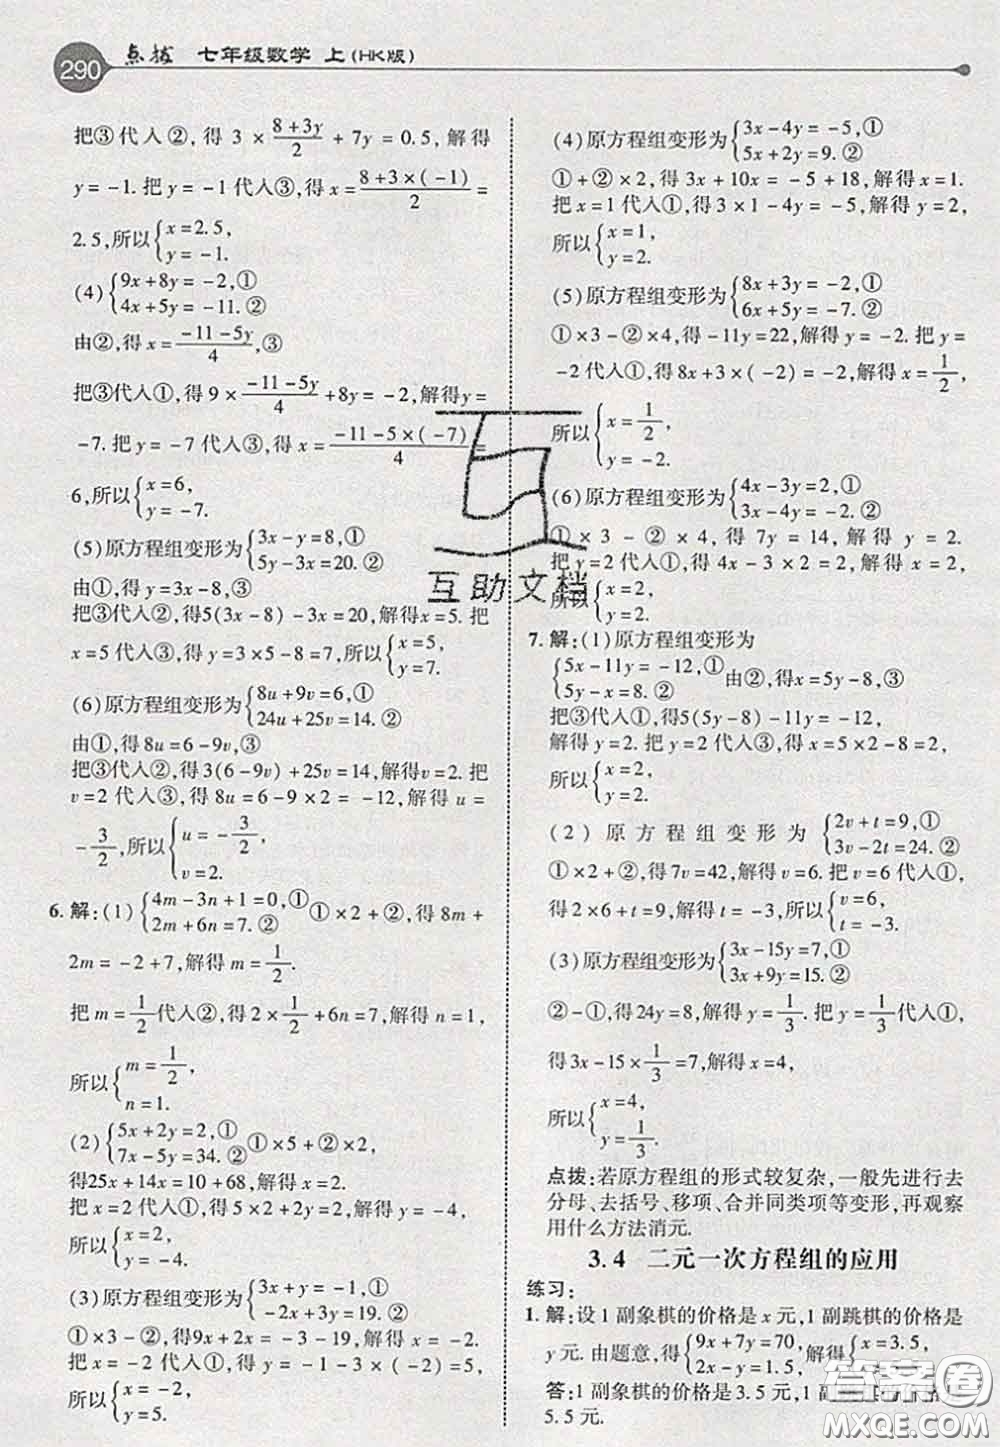 290 点拨 七年级数学 上(HK版)
把③代入②,得 3×(8+3y)/2+7y=0.5,解得
y=-1.把 y=-1代入③,得 x=(8+3×(-1))/2=
2.5,所以{x=2.5, y=-1.
(4){9x+8y=-2,① 4x+5y=-11.②
由②,得 x=(-11-5y)/4,③
把③代入①,得 9×(-11-5y)/4+8y=-2,解得y=
-7.把 y=-7代入③,得 x=(-11-5×(-7))/4=
6,所以{x=6, y=-7.
(5)原方程组变形为{3x-y=8,① 5y-3x=20.②
由①,得 y=3x-8,③
把③代入②,得5(3x-8)-3x=20,解得x=5.把
x=5代入③,得 y=3×5-8=7,所以{x=5, y=7.
(6)原方程组变形为{8u+9v=6,① 24u+25v=14.②
由①,得 8u=6-9v,③
把③代入②,得 3(6-9v)+25v=14,解得v=2.把
v=2代入③,得 8u=6-9×2=-12,解得 u=
-3/2,所以{u=-3/2, v=2.
6.解:(1){4m-3n+1=0,① 2m+6n=7.②①×2+②,得8m+
2m=-2+7,解得 m=1/2.
把 m=1/2代入②,得2×1/2+6n=7,解得 n=1,
所以{m=1/2, n=1.
(2){5x+2y=2,① 7x-5y=34.②①×5+②×2,
得25x+14x=10+68,解得 x=2.
把x=2代入①,得5×2+2y=2,解得y=-4,
所以{x=2, y=-4.
(3)原方程组变形为{3x+y=-1,① -2x+3y=19.②
①×3-②,得11x=-3-19,解得 x=-2.
把 x=-2代入①,得3×(-2)+y=-1,解得y=5,
所以{x=-2, y=5.
(4)原方程组变形为{3x-4y=-5,① 5x+2y=9.②
①+②×2,得 3x+10x=-5+18,解得 x=1.
把 x=1代入①,得3×1-4y=-5,解得y=2,
所以{x=1, y=2.
(5)原方程组变形为{8x+3y=-2,① 6x+5y=-7.②
①×3-②×4,得-11y=22,解得y=-2.把 y=
-2代入①,得8x+3×(-2)=-2,解得x=1/2,
所以{x=1/2, y=-2.
(6)原方程组变形为{4x-3y=2,① 3x-4y=-2.②
①×3-②×4,得 7y=14,解得 y=2.
把y=2代入①,得4x-3×2=2,解得 x=2,
所以{x=2, y=2.
7.解:(1)原方程组变形为
{5x-11y=-12,① 5y-x=8.②由②,得x=5y-8,③
把③代入①,得5(5y-8)-11y=-12,
解得 y=2.把 y=2代入③,得x=5×2-8=2,
所以{x=2, y=2.
(2)原方程组变形为{2v+t=9,① 3v-2t=24.②
①×2+②,得 7v=42,解得 v=6.把 v=6代入①,
得 2×6+t=9,解得t=-3,所以{v=6, t=-3.
(3)原方程组变形为{3x-15y=7,① 3x+9y=15.②
②-①,得24y=8,解得y=1/3.把y=1/3代入①,
得 3x-15×1/3=7,解得 x=4,
所以{x=4, y=1/3.
点拨:若原方程组的形式较复杂,一般先进行去
分母、去括号、移项、合并同类项等变形,再观察
用什么方法消元.
3.4 二元一次方程组的应用
练习:
1.解:设1副象棋的价格是x元,1副跳棋的价格是
y元.由题意,得{9x+7y=70, 2x-y=1.5,解得{x=3.5,
答:1副象棋的价格是3.5元,1副
5.5元.
互助文档
答案圈
MXQE.COM